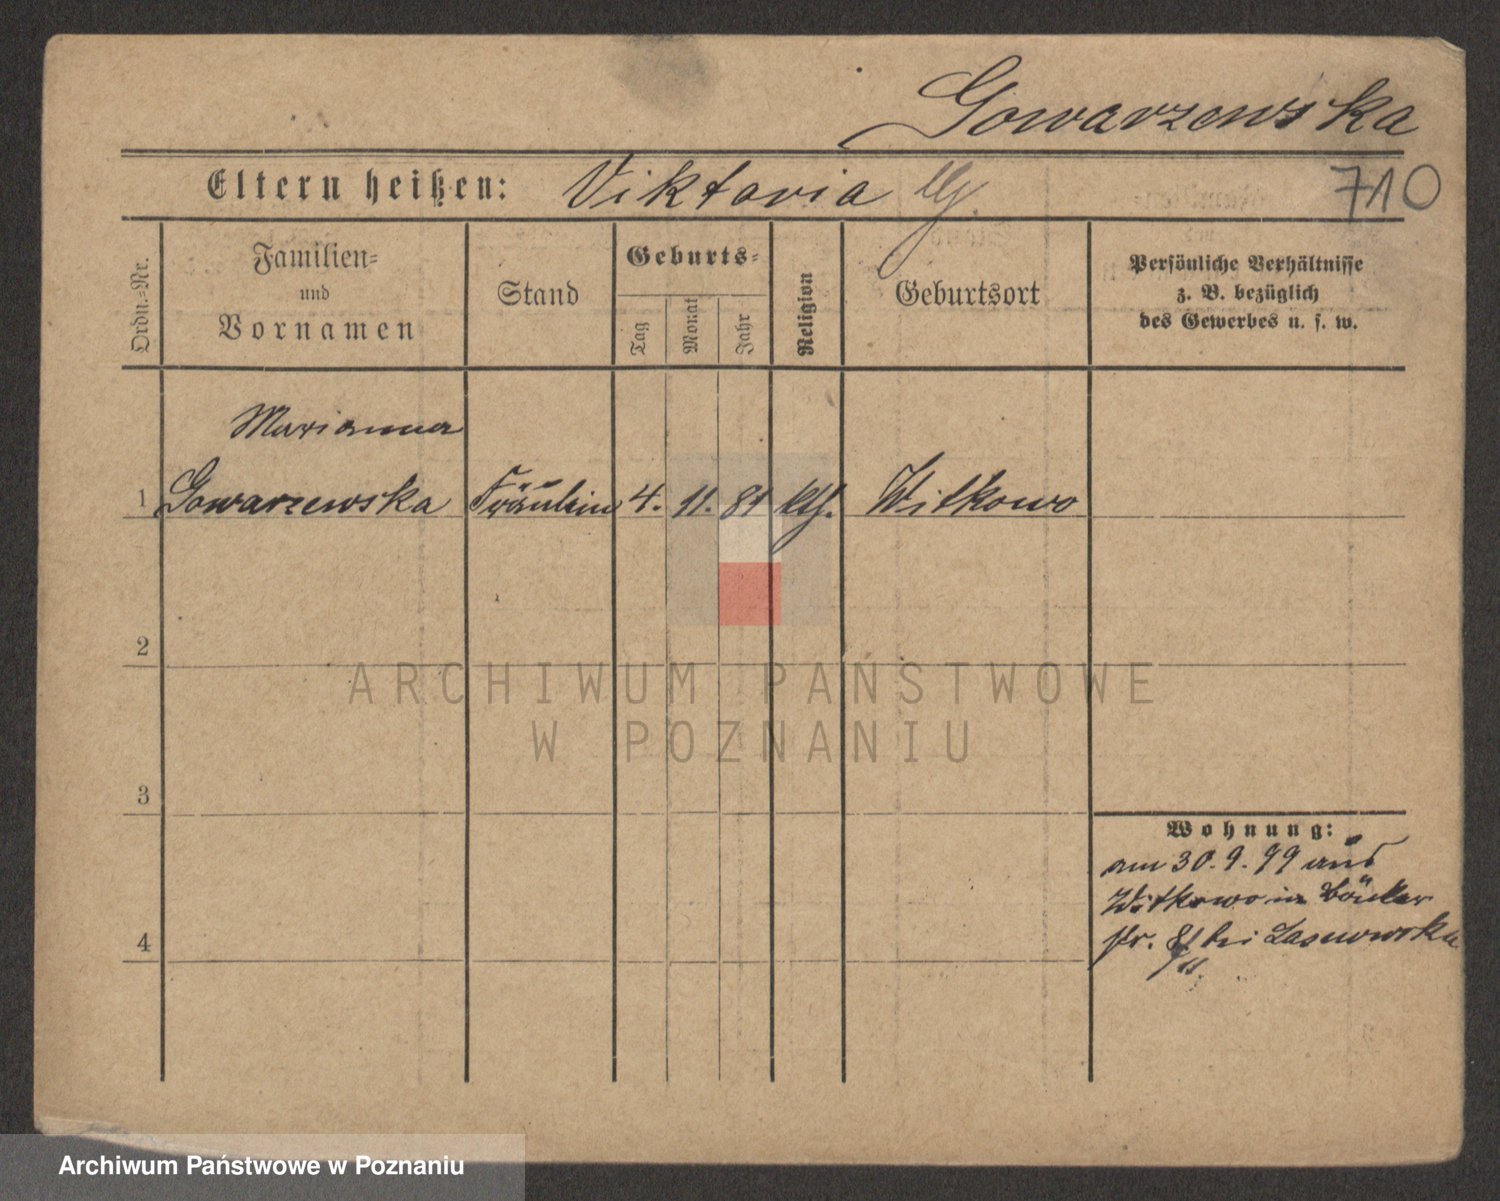 Gowarzewska
Eltern heißen: Viktoria G.
710
Ordn.=Nr.
Familien=
und
Vornamen
Stand
Geburts=
Tag
Monat
Jahr
Religion
Geburtsort
Persönliche Verhältnisse
z. B. bezüglich
des Gewerbes u. s. w.
Marianna
1 Gowarzewska Fräulein 4. 11. 81 kth. Witkowo
2
ARCHIWUM PAŃSTWOWE
W POZNANIU
3
Wohnung:
am 30. 9. 99 aus
Witkowo in Bäcker
str. bei
4
Archiwum Państwowe w Poznaniu